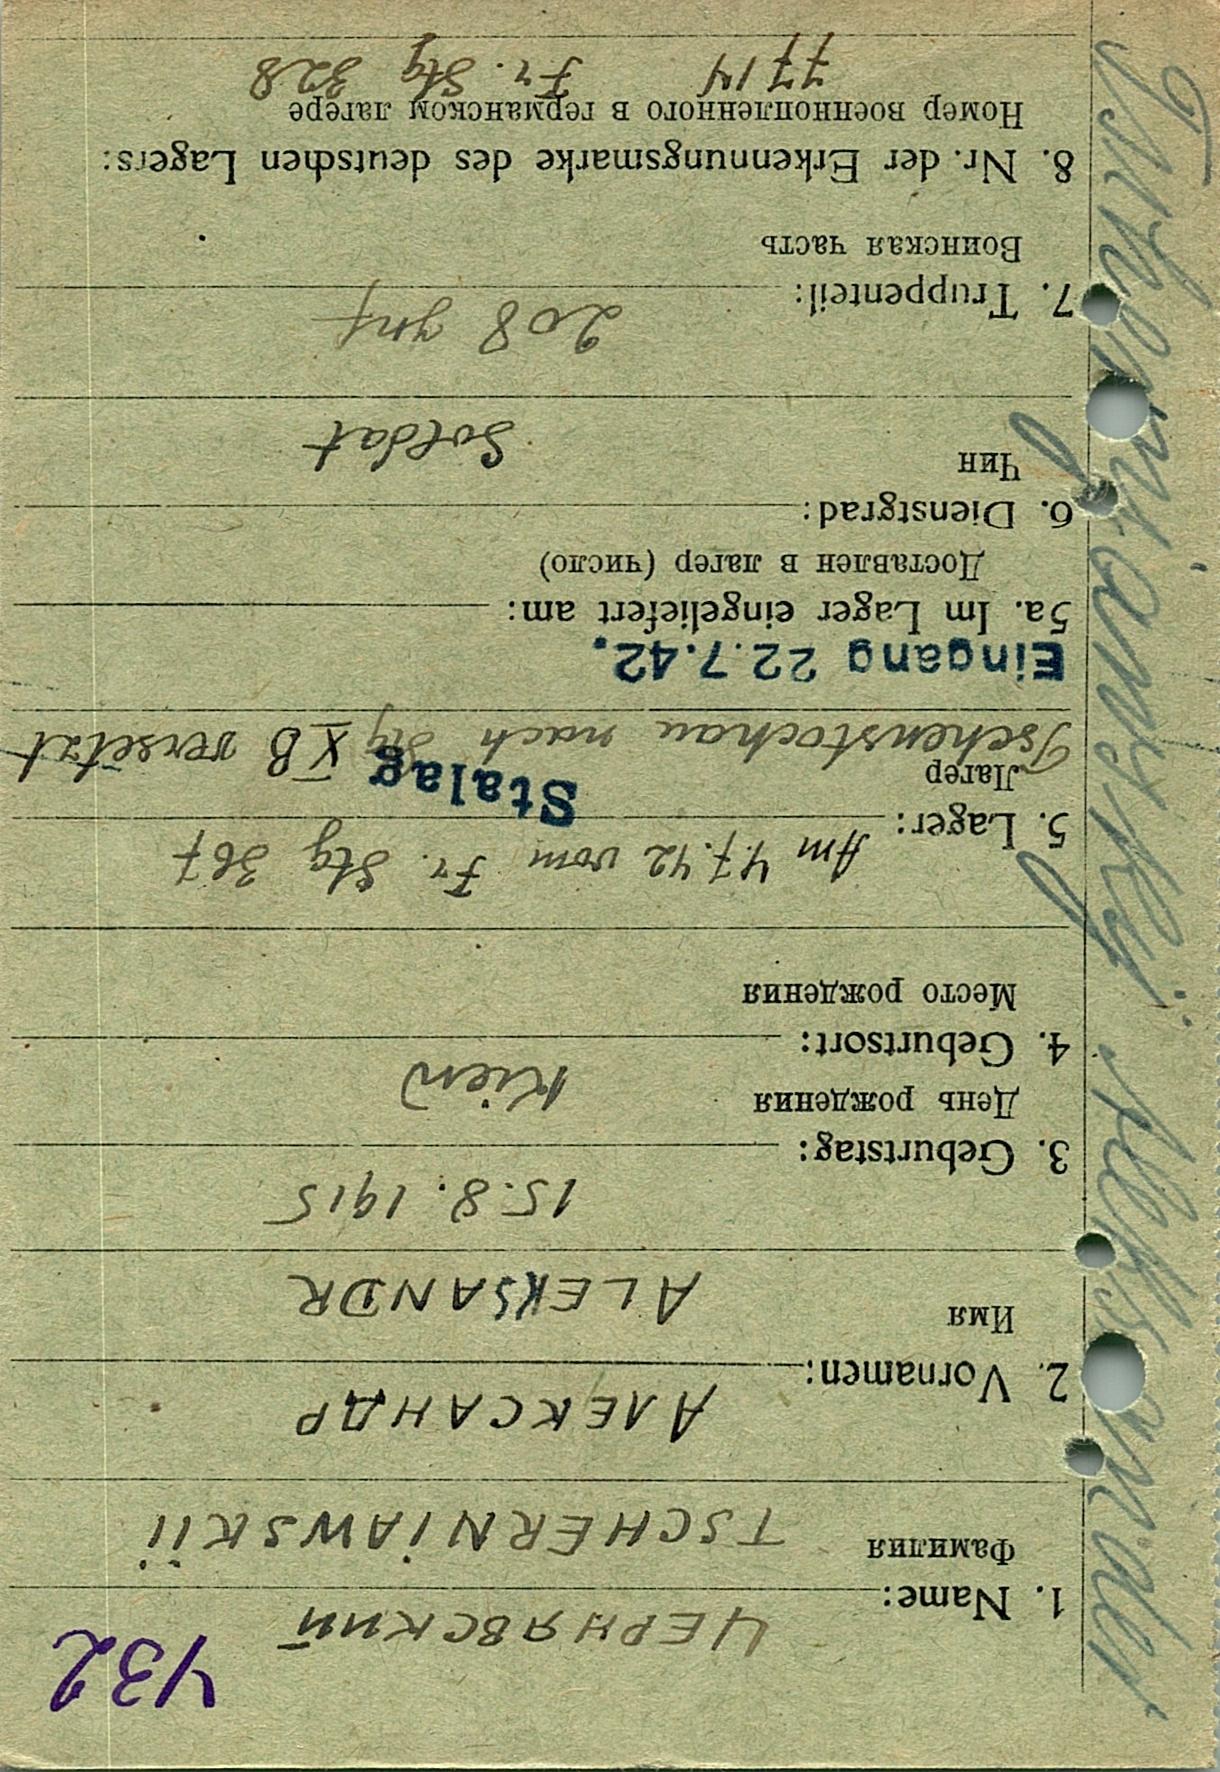 432
ЧЕРНЯВСКИЙ
1. Name:
Фамилия
TSCHERNIAWSKII
АЛЕКСАНДР
2. Vornamen:
Имя
ALEKSANDR
15.8.1915
3. Geburtstag:
День рождения
Kiew
4. Geburtsort:
Место рождения
Am 4.7.42 vom Fr. Stg 367
5. Lager:
Лагер
Stalag
Tschenstochau nach Stg XB versetzt
Eingang 22.7.42.
5a. Im Lager eingeliefert am:
Доставлен в лагер (число)
6. Dienstgrad:
Чин
Soldat
208 Inf
7. Truppenteil:
Воинская часть
8. Nr. der Erkennungsmarke des deutschen Lagers:
Номер военнопленного в германском лагере
7714 Fr. Stg 328
Tscherniawskij Aleksander